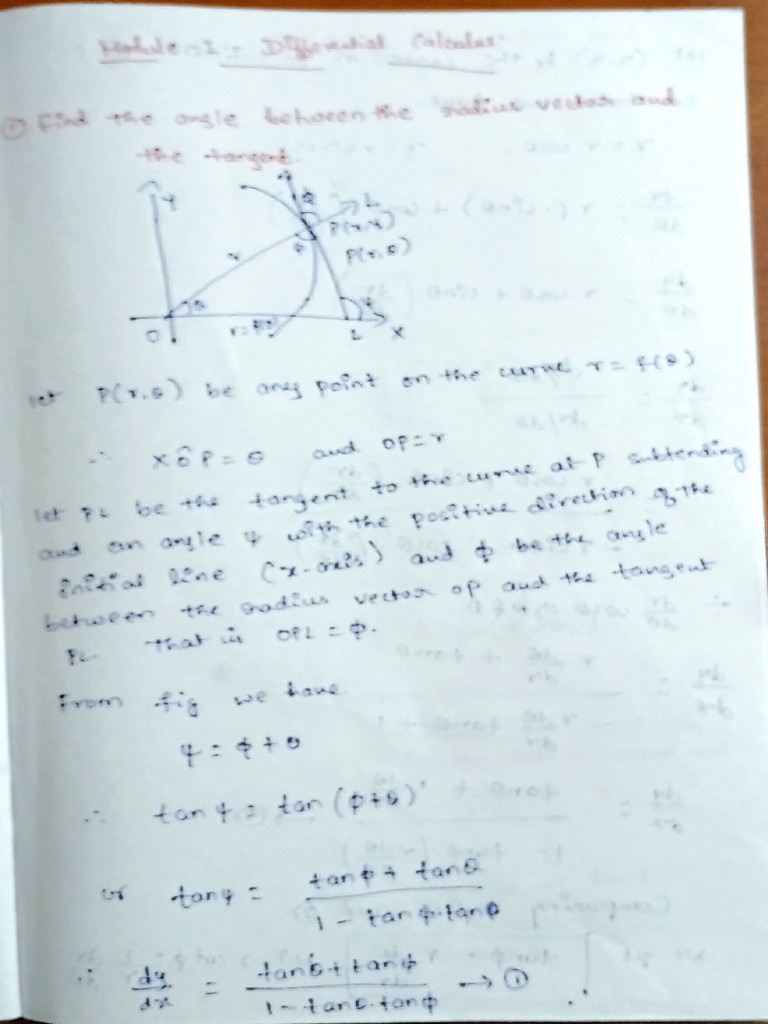 Module-I :- Differential Calculus:
① Find the angle between the radius vector and
the tangent.
Y
L
P(x,y)
P(r,θ)
φ
r
θ
ψ
O
r=f(θ)
L
X
let P(r,θ) be any point on the curve r = f(θ)
∴ XÔP = θ and OP=r
let PL be the tangent to the curve at P subtending
and an angle ψ with the positive direction of the
initial line (x-axis) and φ be the angle
between the radius vector OP and the tangent
PL. That is OPL = φ.
From fig we have
ψ = φ + θ
∴ tan ψ = tan (φ+θ)
or tan ψ = (tan φ + tan θ) / (1 - tan φ. tan θ)
∴ dy/dx = (tan θ + tan φ) / (1 - tan θ. tan φ) → ①